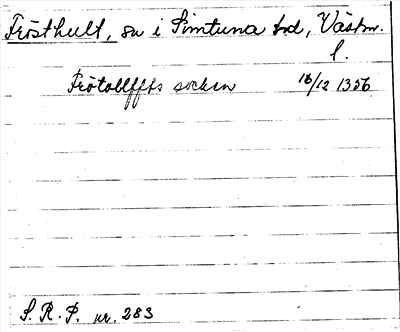 Frösthult, sn i Simtuna hd, Västm.
l.
Frötollffts socken 16/12 1356
S. R. P. nr. 283